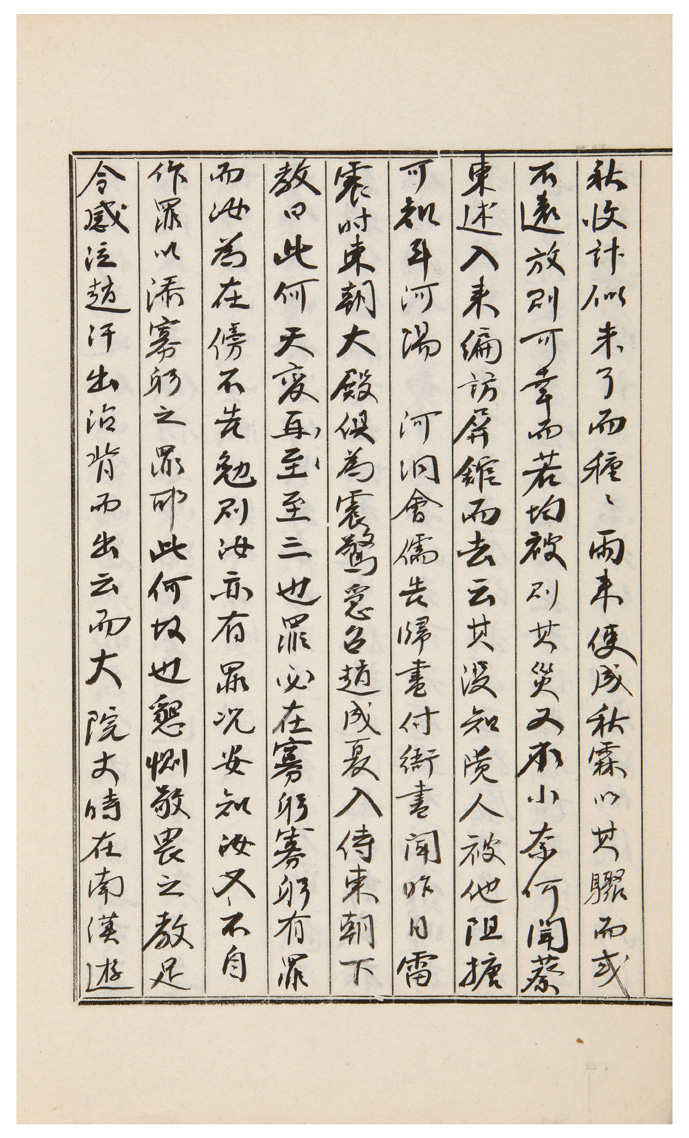 秋收計似未了而種〻雨來便成秋霖以其驟而或
不遠放則可幸而若均被則其災又不小奈何聞蔡
東述入來編訪屛錐而去云其沒知覓人被他阻搪
可知耳河陽　河洞會儒告歸書付衙書聞昨日雷
震時東朝大殿俱爲震驚急召趙成夏入侍東朝下
教曰此何天變再〻至至三也罪必在寡躬寡躬有罪
而汝爲在傍不先勉則汝亦有罪況安知汝又不自
作罪以添寡躬之罪耶此何故也懇惻敬畏之教足
令感泣趙汗出沾背而出云而大院丈時在南漢遊